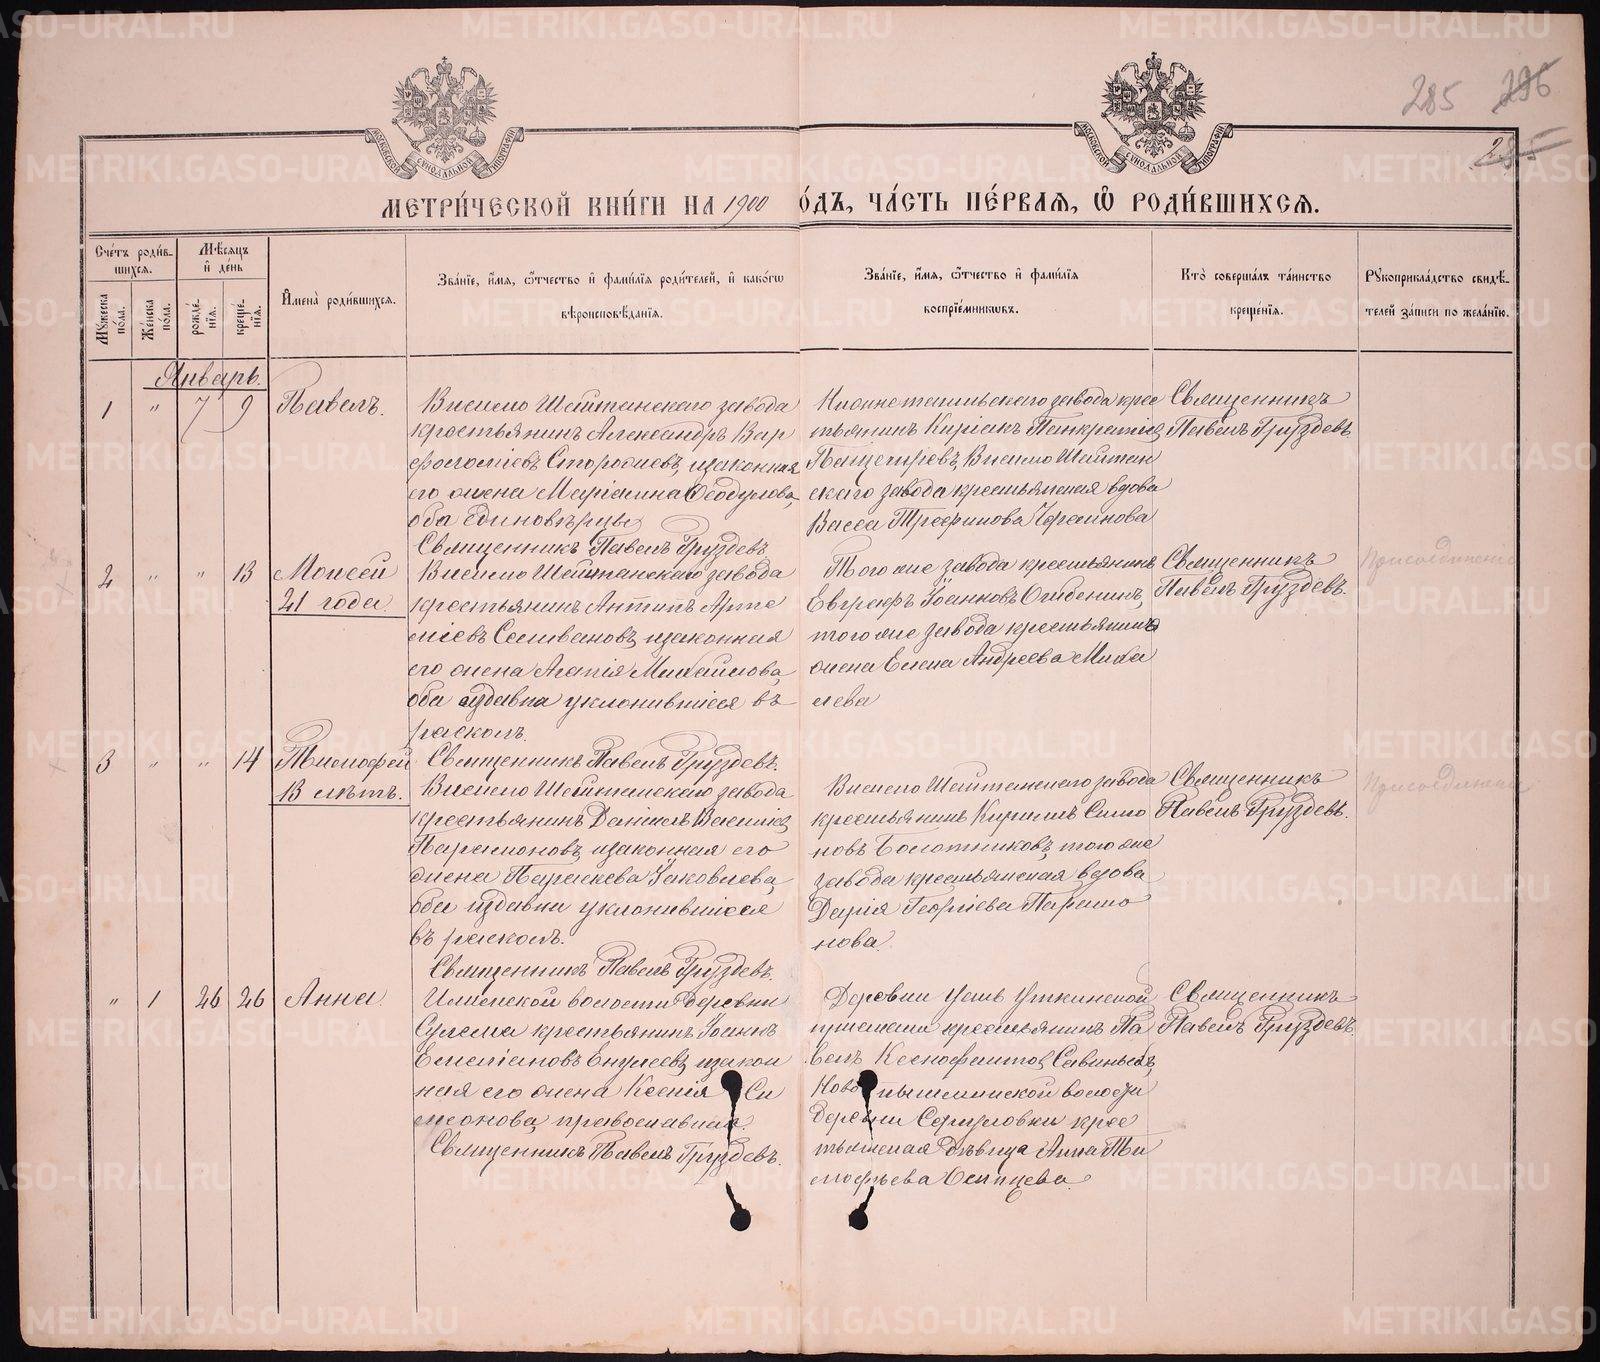 285 296
285
МОСКОВСКОЙ СѴНОДАЛЬНОЙ ТИПОГРАФІИ
МОСКОВСКОЙ СѴНОДАЛЬНОЙ ТИПОГРАФІИ
МЕТРИ́ЧЕСКОЙ КНИ́ГИ НА 1900 ГО́ДЪ, ЧА́СТЬ ПЕ́РВАЯ, Ѡ҆ РОДИ́ВШИХСЯ.
Сче́тъ роди́в-
шихся.
Мѣ́сяцъ
и҆ де́нь
Мꙋ́жеска
по́ла.
Же́нска
по́ла.
рожде́-
нїя.
креще́-
нїя.
И҆мена̀ роди́вшихся.
Зва́нїе, и҆́мя, ѻ҆́тчество и҆ фами́лїя роди́телей, и҆ како́гѡ
вѣроисповѣ́данїя.
Зва́нїе, и҆́мя, ѻ҆́тчество и҆ фами́лїя
воспрїе́мниковъ.
Кто̀ соверша́лъ та́инство
креще́нїя.
Рꙋкоприкла́дство свидѣ́-
телей за́писи по жела́нїю.
Январь.
1 " 7 9 Павелъ.
Висимо Шайтанскаго завода
крестьянинъ Александръ Вар
фоломіевъ Стародиевъ, и законная
его жена Маріанна Ѳеодулова,
оба единовѣрцы
Священникъ Павелъ Груздевъ
Нижнетагильскаго завода крес
тьянинъ Киріакъ Панкратіевъ
Висимо Шайтан
скаго завода крестьянская вдова
Васса Трефилова
Священникъ
Павелъ Груздевъ
2 " " 13 Моисей
21 года.
Висимо Шайтанскаго завода
крестьянинъ Антипъ Арте
міевъ Селивановъ, и законная
его жена Агапія Михайлова,
оба издавна уклонившіеся въ
расколъ.
Священникъ Павелъ Груздевъ.
Того же завода крестьянинъ
Евграфъ Іоанновъ Огибенинъ,
того же завода крестьянина
жена Елена Андреева Миха
лева
Священникъ
Павелъ Груздевъ.
Присоединеніе
3 " " 14 Тимофей
13 лѣтъ.
Висимо Шайтанскаго завода
крестьянинъ Даніилъ Василіевъ
Парамоновъ, и законная его
жена Параскева Іаковлева,
оба издавна уклонившіеся
въ расколъ.
Священникъ Павелъ Груздевъ.
Висимо Шайтанскаго завода
крестьянинъ Кириллъ Симо
новъ Болотниковъ, того же
завода крестьянская вдова
Дарія Георгіева Парамо
нова.
Священникъ
Павелъ Груздевъ.
Присоединеніе
" 1 26 26 Анна.
Илимской волости деревни
Сулема крестьянинъ Іоаннъ
Емеліановъ и закон
ная его жена Ксенія Си
меонова, православная.
Священникъ Павелъ Груздевъ.
Деревни Усть Уткинской
пристани крестьянинъ Па
велъ Ксенофонтовъ Савиныхъ,
Ново пышминской волости
деревни крес
тьянская дѣвица Анна Ти
мофѣева Осинцева.
Священникъ
Павелъ Груздевъ.
METRIKI.GASO-URAL.RU